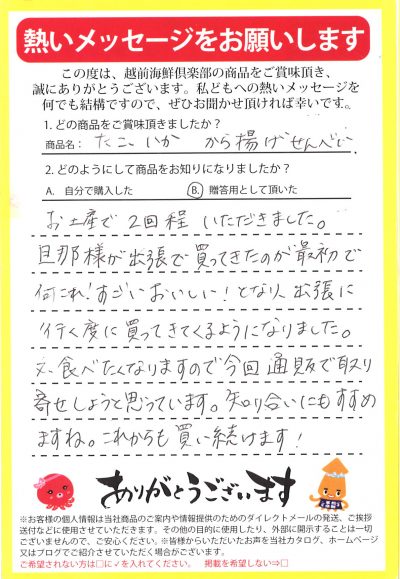 熱いメッセージをお願いします
この度は、越前海鮮倶楽部の商品をご賞味頂き、
誠にありがとうございます。私どもへの熱いメッセージを
何でも結構ですので、ぜひお聞かせ頂ければ幸いです。
1. どの商品をご賞味頂きましたか？
商品名： たこ、いか から揚げせんべい
2. どのようにして商品をお知りになりましたか？
A. 自分で購入した B. 贈答用として頂いた
お土産で2回程いただきました。
旦那様が出張で買ってきたのが最初で
何これ！すごいおいしい！となり、出張に
行く度に買ってきてくるようになりました。
又、食べたくなりますので今回通販で取り
寄せしようと思っています。知り合いにもすすめ
ますね。これからも買い続けます！
ありがとうございます
※お客様の個人情報は当社商品のご案内や情報提供のためのダイレクトメールの発送、ご挨拶
送付などに使用させていただきます。その他の目的に使用したり、外部に開示することは一切
ございませんので、ご安心ください。※皆様からいただいたお声を当社カタログ、ホームページ
又はブログでご紹介させていただく場合がございます。
ご希望されない方は□に✓を入れてください。 掲載を希望しない⇒□